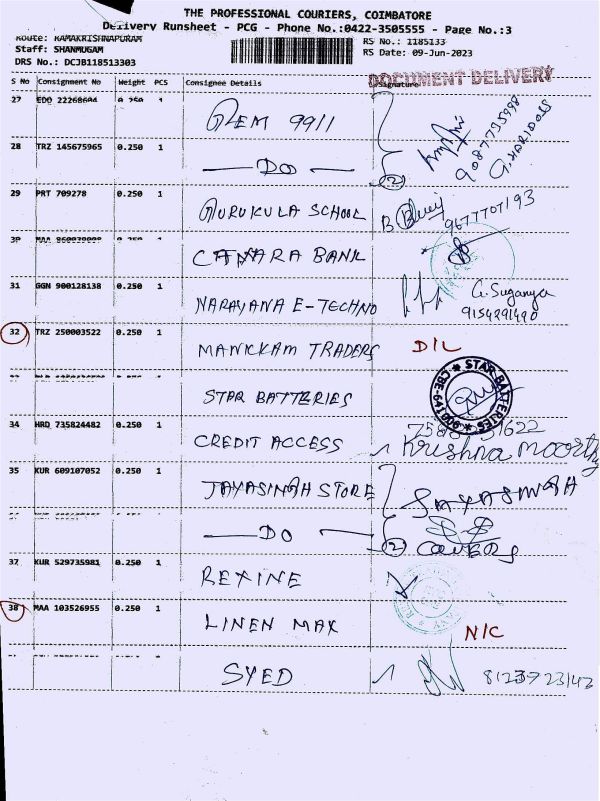 THE PROFESSIONAL COURIERS, COIMBATORE
Delivery Runsheet - PCG - Phone No.:0422-3505555 - Page No.:3
Route: RAMAKRISHNAPURAM
Staff: SHANMUGAM
DRS No.: DCJB118513303
RS No.: 1185133
RS Date: 09-Jun-2023
DOCUMENT DELIVERY
S No Consignment No Weight PCS Consignee Details Signature
27 EDO 22268604 0.250 1 GEM 9911
9087735998
G. HARIDOSS
28 TRZ 145675965 0.250 1 DO (2)
29 PRT 709278 0.250 1 GURUKULA SCHOOL 9677707193
CANARA BANK
31 GGN 900128138 0.250 1 NARAYANA E-TECHNO G. Suganya
9154291490
32 TRZ 250003522 0.250 1 MANICKAM TRADERS D/L
STAR BATTERIES
STAR BATTERIES * CBE-641 006 *
34 HRD 735824482 0.250 1 CREDIT ACCESS Krishna moorthy
35 KUR 609107052 0.250 1 JAYASINGH STORE JAYASINGH
DO (2) COVERS
37 KUR 529735981 0.250 1 REXINE
38 MAA 103526955 0.250 1 LINEN MAX N/C
SYED